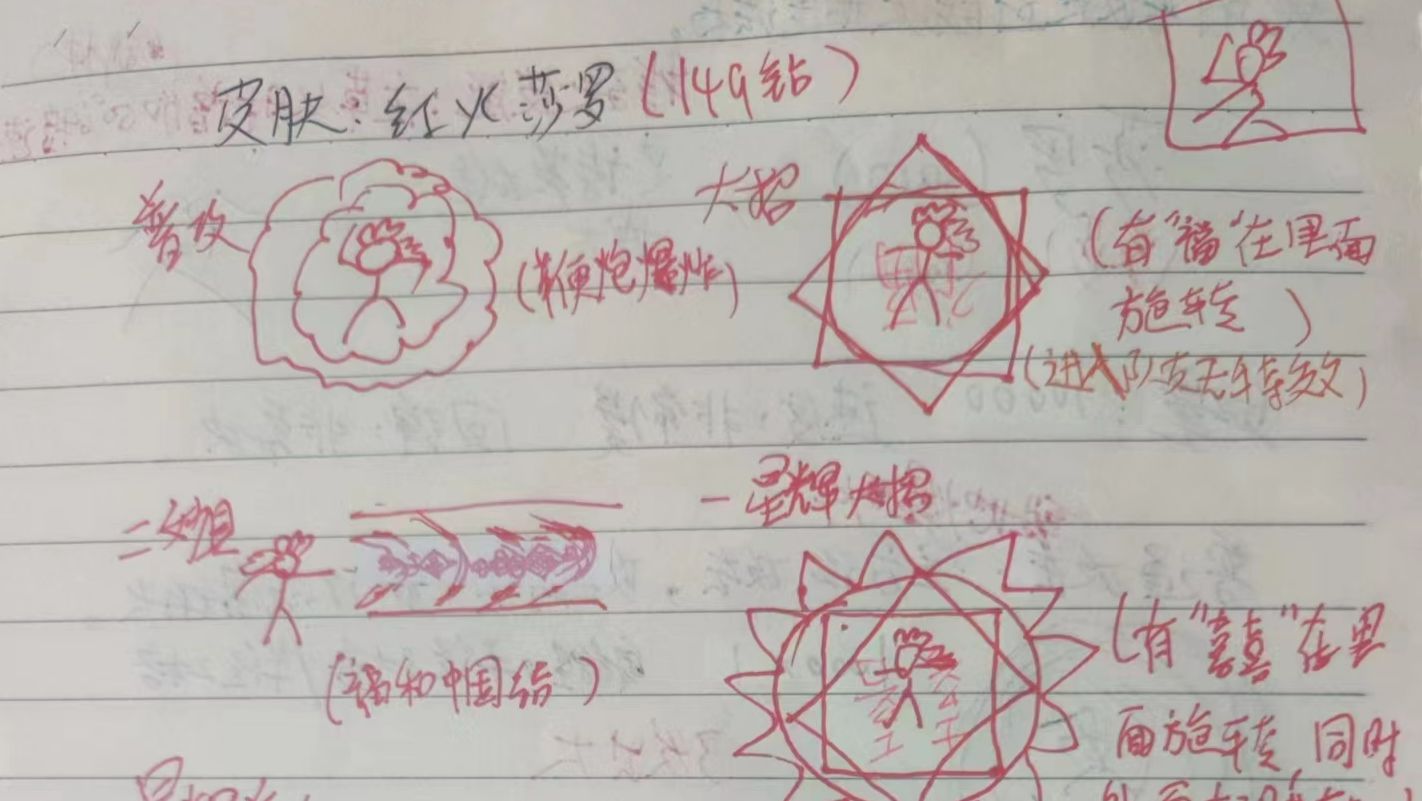 皮肤：红火莎罗（149钻）
普攻
（鞭炮爆炸）
大招
（有“福”在里面
施转）
（进入队友无特效）
二姐
（福和中国结）
一星辉大招
（有“囍”在里
面施转，同时